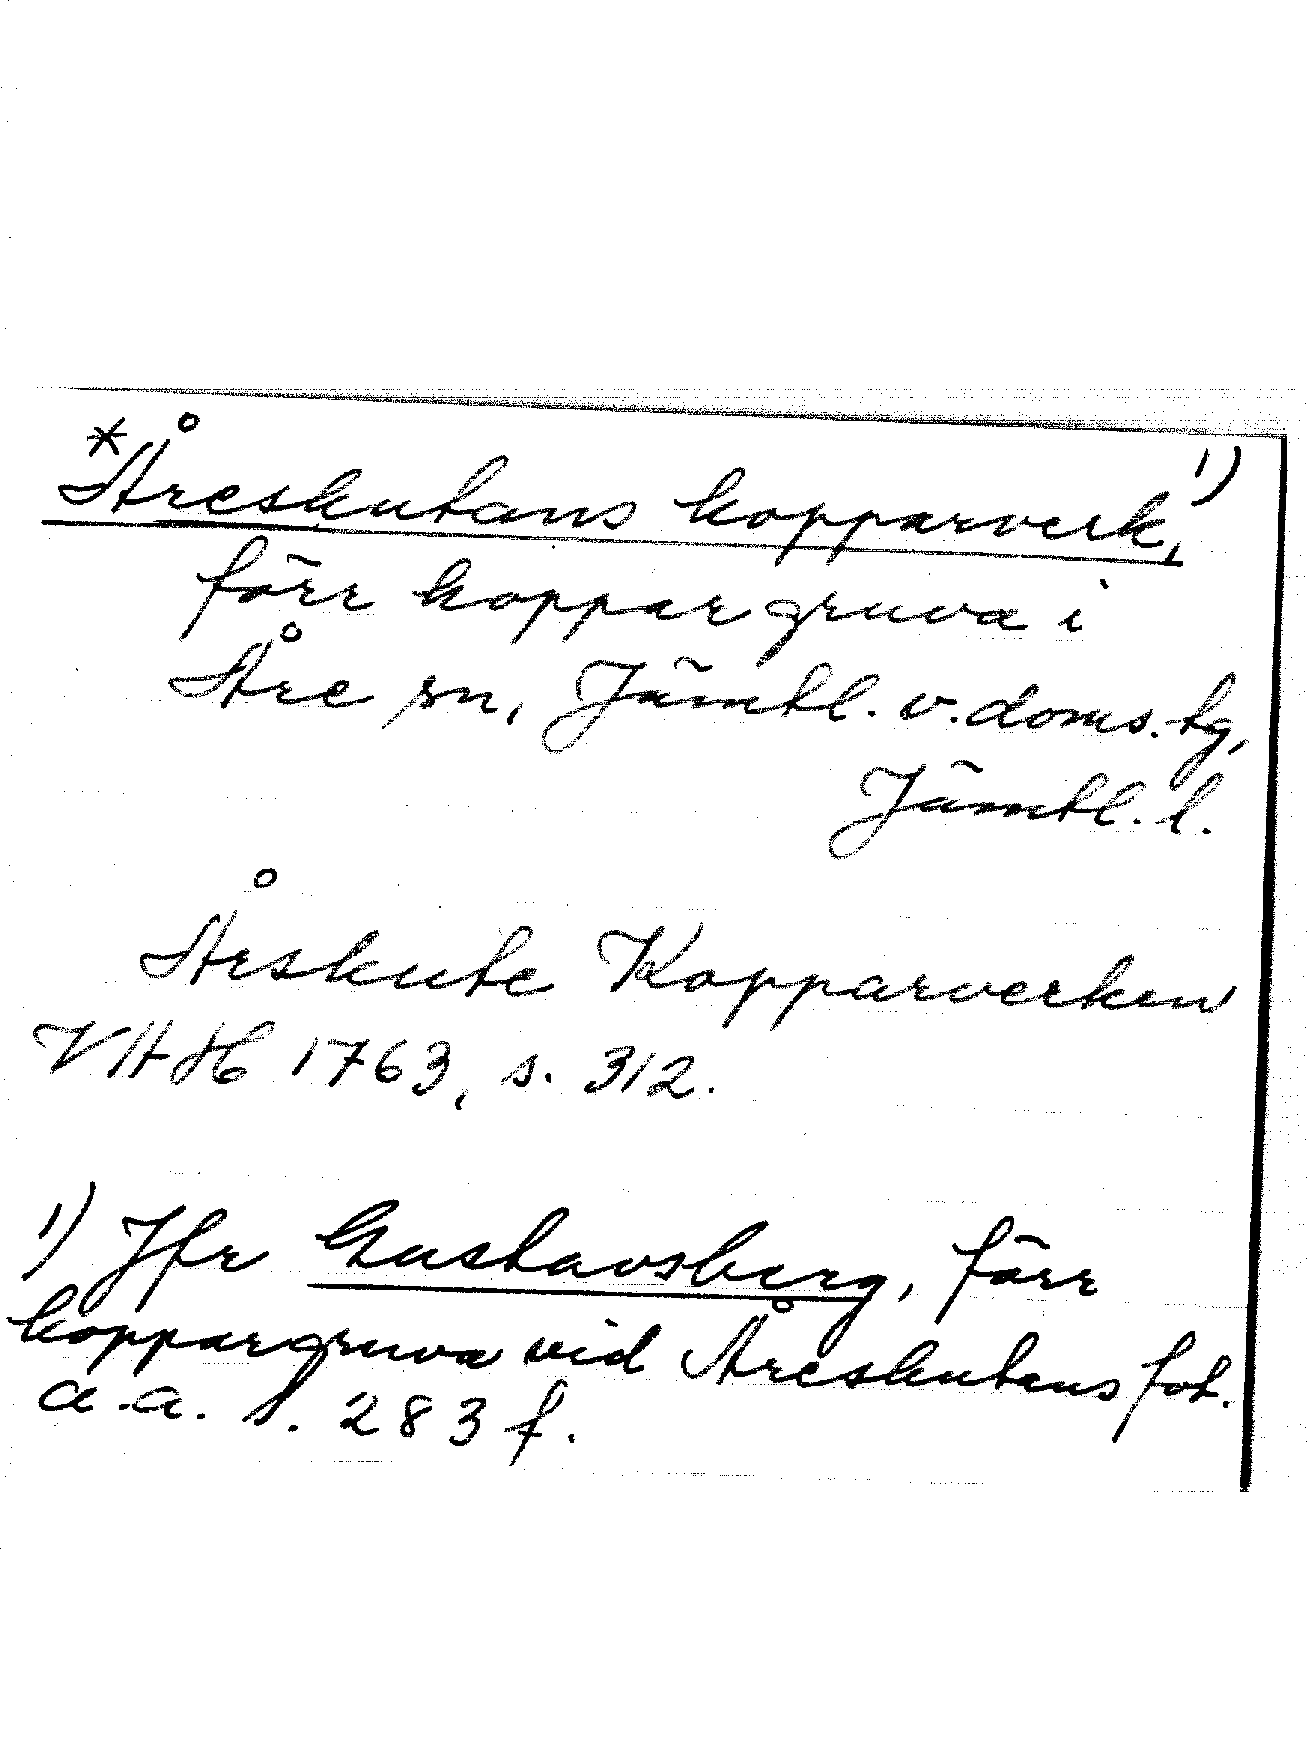 *Åreskutans kopparverk, 1)
förr koppargruva i
Åre sn, Jämtl. v. doms. tg,
Jämtl. l.
Årskute Kopparverken
VHAH 1763, s. 312.
1) Jfr Gustavsberg, förr
koppargruva vid Åreskutans fot.
a.a. s. 283 f.